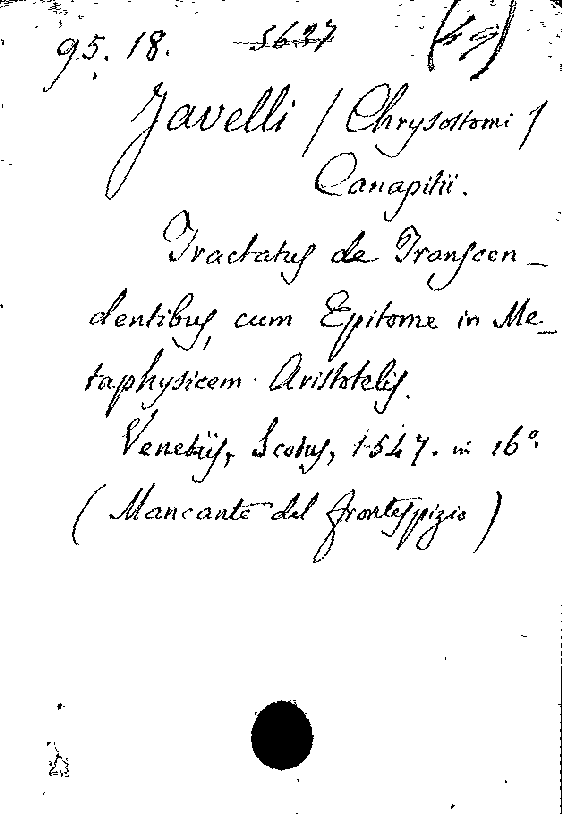 95. 18. 3627
Javelli / Chrysostomi /
Canapitii.
Tractatus de Transcen_
dentibus, cum Epitome in Me_
taphysicem Aristotelis.
Venetiis, Scotus, 1547. in 16°.
(Mancante del frontespizio)